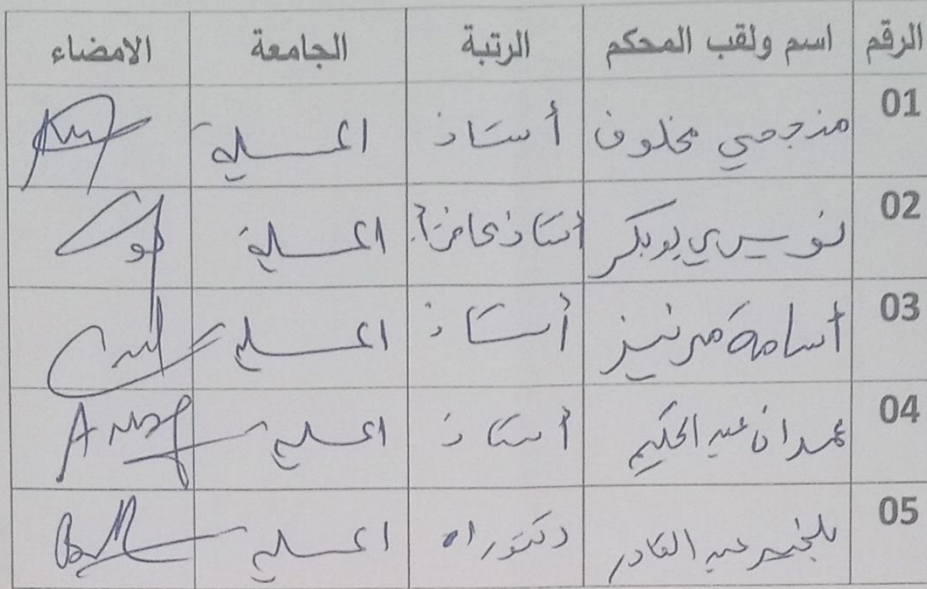 الرقم اسم ولقب المحكم الرتبة الجامعة الامضاء
01 مخلوف أستاذ المسيلة
02 بوبكر أستاذ محاضر أ المسيلة
03 أسامة أستاذ المسيلة
04 عبد الحكيم أستاذ المسيلة
05 بلخير عبد القادر دكتوراه المسيلة